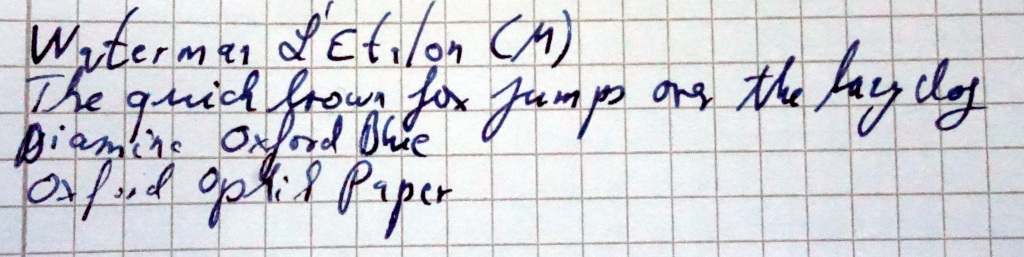 Waterman L'Etalon (M)
The quick brown fox jumps over the lazy dog
Diamine Oxford Blue
Oxford Optik Paper